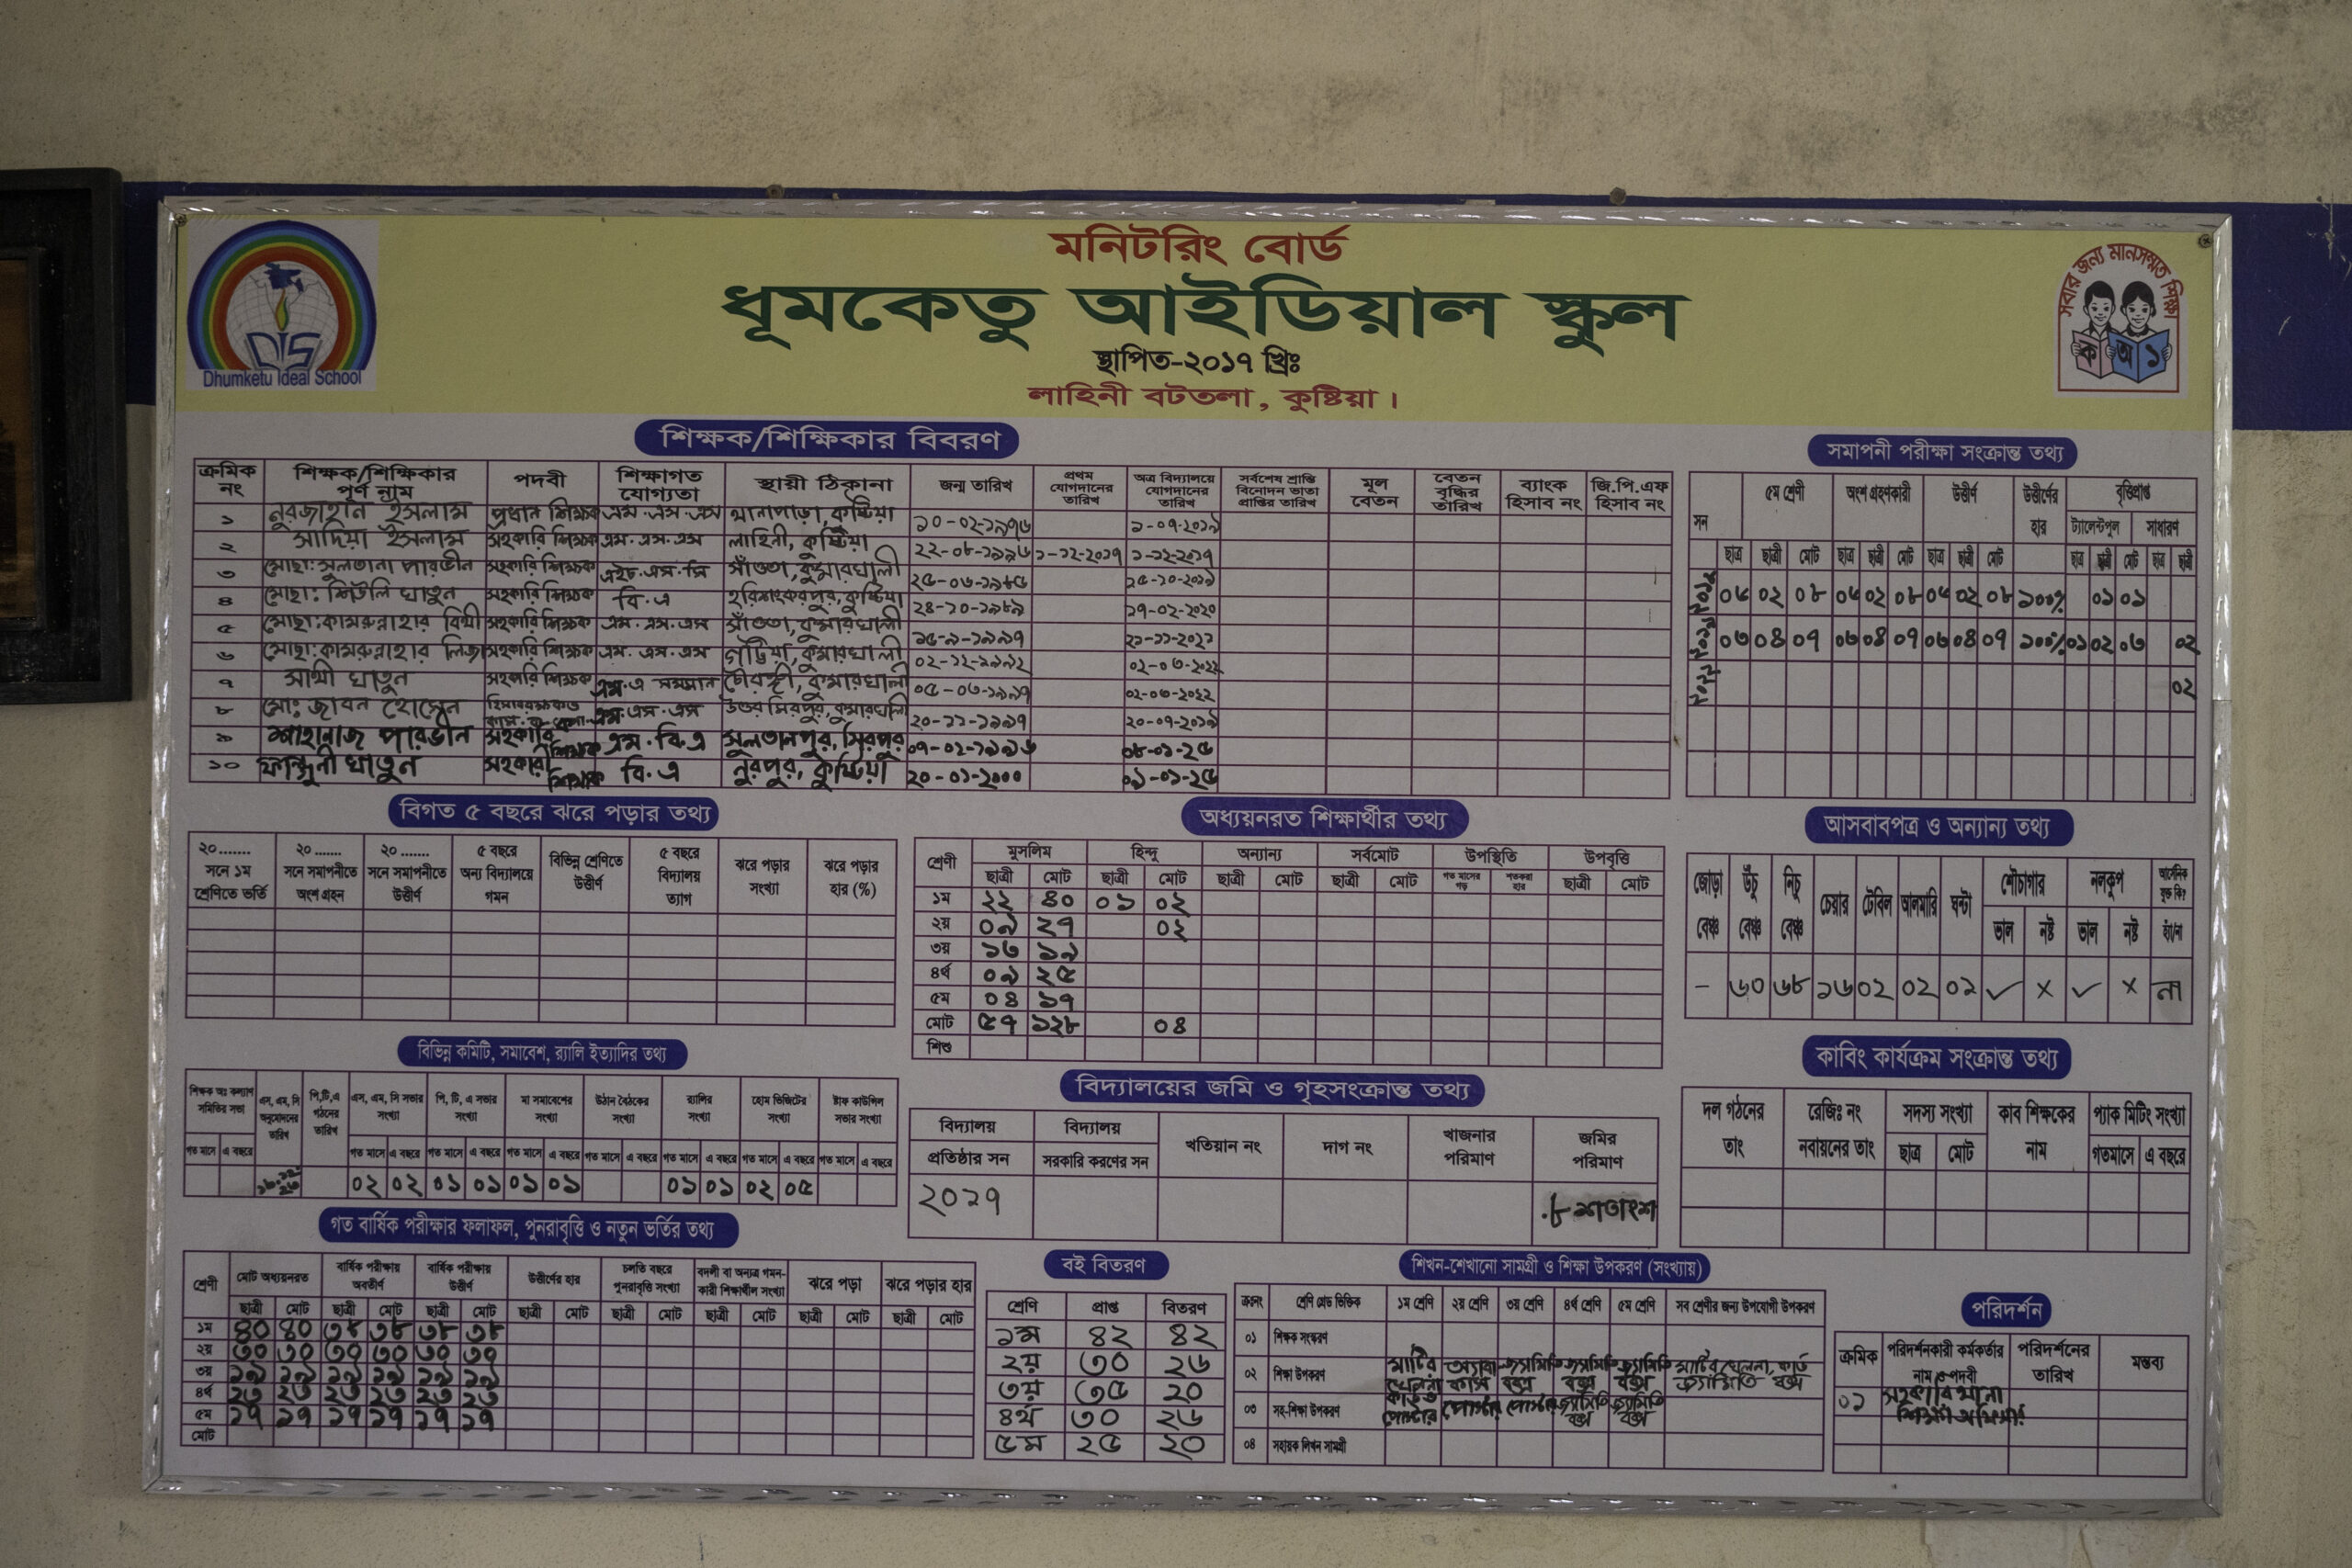 মনিটরিং বোর্ড
ধূমকেতু আইডিয়াল স্কুল
স্থাপিত-২০১৭ খ্রিঃ
লাহিনী বটতলা, কুষ্টিয়া।
Dhumketu Ideal School
সবার জন্য মানসম্মত শিক্ষা
ক অ ১
শিক্ষক/শিক্ষিকার বিবরণ
ক্রমিক নং শিক্ষক/শিক্ষিকার পূর্ণ নাম পদবী শিক্ষাগত যোগ্যতা স্থায়ী ঠিকানা জন্ম তারিখ প্রথম যোগদানের তারিখ অত্র বিদ্যালয়ে যোগদানের তারিখ সর্বশেষ শ্রান্তি বিনোদন ভাতা প্রাপ্তির তারিখ মূল বেতন বেতন বৃদ্ধির তারিখ ব্যাংক হিসাব নং জি.পি.এফ হিসাব নং
১ নুরজাহান ইসলাম প্রধান শিক্ষক এম.এস.এস থানাপাড়া, কুষ্টিয়া ১০-০২-১৯৭৬ ১-০৭-২০১৯
২ সাদিয়া ইসলাম সহকারি শিক্ষক এম.এস.এস লাহিনী, কুষ্টিয়া ২২-০৮-১৯৯৬ ১-১২-২০১৭ ১-১২-২০১৭
৩ মোছা: সুলতানা পারভীন সহকারি শিক্ষক এইচ.এস.সি সাঁওতা, কুমারখালী ২৫-০৬-১৯৮৫ ১৫-১০-২০১৯
৪ মোছা: শিউলি খাতুন সহকারি শিক্ষক বি.এ হরিশংকরপুর, কুষ্টিয়া ২৪-১০-১৯৮৯ ১৭-০২-২০২০
৫ মোছা: কামরুন্নাহার বিথী সহকারি শিক্ষক এম.এস.এস সাঁওতা, কুমারখালী ১৫-৯-১৯৯৭
৬ মোছা: কামরুন্নাহার লিজা সহকারি শিক্ষক এম.এস.এস কুমারখালী ০২-১২-১৯৯২ ০২-০৩-২০২২
৭ সাথী খাতুন সহকারি শিক্ষক এম.এ সমমান চৌরঙ্গী, কুমারখালী ০৫-০৩-১৯৯৭ ০২-০৩-২০২২
৮ মো: জীবন হোসেন এম.এস.এস উত্তর মিরপুর, কুমারখালি ২০-১১-১৯৯৭ ২০-০৭-২০১৯
৯ শাহানাজ পারভীন সহকারি শিক্ষক এম.বি.এ সুলতানপুর, মিরপুর ০৭-০২-১৯৯৬ ০৮-০১-২৫
১০ ফাল্গুনী খাতুন সহকারী শিক্ষক বি.এ নুরপুর, কুষ্টিয়া ২০-০১-২০০০ ০১-০১-২৫
সমাপনী পরীক্ষা সংক্রান্ত তথ্য
সন ৫ম শ্রেণী অংশ গ্রহণকারী উত্তীর্ণ উত্তীর্ণের হার বৃত্তিপ্রাপ্ত
ট্যালেন্টপুল সাধারণ
ছাত্র ছাত্রী মোট ছাত্র ছাত্রী মোট ছাত্র ছাত্রী মোট ছাত্র ছাত্রী মোট ছাত্র ছাত্রী
০৬ ০২ ০৮ ০৬ ০২ ০৮ ০৬ ০২ ০৮ ১০০% ০১ ০১
০৩ ০৪ ০৭ ০৩ ০৪ ০৭ ০৩ ০৪ ০৭ ১০০% ০১ ০২ ০৩ ০২
০২
বিগত ৫ বছরে ঝরে পড়ার তথ্য
২০....... সনে ১ম শ্রেণিতে ভর্তি ২০....... সনে সমাপনীতে অংশ গ্রহন ২০....... সনে সমাপনীতে উত্তীর্ণ ৫ বছরে অন্য বিদ্যালয়ে গমন বিভিন্ন শ্রেণিতে উত্তীর্ণ ৫ বছরে বিদ্যালয় ত্যাগ ঝরে পড়ার সংখ্যা ঝরে পড়ার হার (%)
অধ্যয়নরত শিক্ষার্থীর তথ্য
শ্রেণী মুসলিম হিন্দু অন্যান্য সর্বমোট উপস্থিতি উপবৃত্তি
ছাত্রী মোট ছাত্রী মোট ছাত্রী মোট ছাত্রী মোট গত মাসের গড় শতকরা হার ছাত্রী মোট
১ম ২২ ৪০ ০১ ০২
২য় ০৯ ২৭ ০২
৩য় ১৬ ১৯
৪র্থ ০৯ ২৫
৫ম ০৪ ১৭
মোট ৫৭ ১২৮ ০৪
শিশু
আসবাবপত্র ও অন্যান্য তথ্য
জোড়া বেঞ্চ উঁচু বেঞ্চ নিচু বেঞ্চ চেয়ার টেবিল আলমারি ঘন্টা শৌচাগার নলকুপ আর্সেনিক যুক্ত কি?
ভাল নষ্ট ভাল নষ্ট হাঁ/না
- ৬০ ৬৮ ১৬ ০২ ০২ ০১ ✓ × ✓ × না
বিভিন্ন কমিটি, সমাবেশ, র‍্যালি ইত্যাদির তথ্য
শিক্ষক অঃ কল্যাণ সমিতির সভা এস, এম, সি অনুমোদনের তারিখ পি,টি,এ গঠনের তারিখ এস, এম, সি সভার সংখ্যা পি, টি, এ সভার সংখ্যা মা সমাবেশের সংখ্যা উঠান বৈঠকের সংখ্যা র‍্যালির সংখ্যা হোম ভিজিটের সংখ্যা ষ্টাফ কাউন্সিল সভার সংখ্যা
গত মাসে এ বছরে গত মাসে এ বছরে গত মাসে এ বছরে গত মাসে এ বছরে গত মাসে এ বছরে গত মাসে এ বছরে গত মাসে এ বছরে গত মাসে এ বছরে
০২ ০২ ০১ ০১ ০১ ০১ ০১ ০১ ০২ ০৫
বিদ্যালয়ের জমি ও গৃহসংক্রান্ত তথ্য
বিদ্যালয় প্রতিষ্ঠার সন বিদ্যালয় সরকারি করণের সন খতিয়ান নং দাগ নং খাজনার পরিমাণ জমির পরিমাণ
২০১৭ .৮ শতাংশ
কাবিং কার্যক্রম সংক্রান্ত তথ্য
দল গঠনের তাং রেজিঃ নং নবায়নের তাং সদস্য সংখ্যা কাব শিক্ষকের নাম প্যাক মিটিং সংখ্যা
ছাত্র মোট গতমাসে এ বছরে
গত বার্ষিক পরীক্ষার ফলাফল, পুনরাবৃত্তি ও নতুন ভর্তির তথ্য
শ্রেণী মোট অধ্যয়নরত বার্ষিক পরীক্ষায় অবতীর্ণ বার্ষিক পরীক্ষায় উত্তীর্ণ উত্তীর্ণের হার চলতি বছরে পুনরাবৃত্তি সংখ্যা বদলী বা অন্যত্র গমনকারী শিক্ষার্থীর সংখ্যা ঝরে পড়া ঝরে পড়ার হার
ছাত্রী মোট ছাত্রী মোট ছাত্রী মোট ছাত্রী মোট ছাত্রী মোট ছাত্রী মোট ছাত্রী মোট ছাত্রী মোট
১ম ৪০ ৪০ ৩৮ ৩৮ ৩৮ ৩৮
২য় ৩০ ৩০ ৩০ ৩০ ৩০ ৩০
৩য় ১৯ ১৯ ১৯ ১৯ ১৯ ১৯
৪র্থ ২৩ ২৩ ২৩ ২৩ ২৩ ২৩
৫ম ১৭ ১৭ ১৭ ১৭ ১৭ ১৭
মোট
বই বিতরণ
শ্রেণি প্রাপ্ত বিতরণ
১ম ৪২ ৪২
২য় ৩০ ২৬
৩য় ৩৫ ২০
৪র্থ ৩০ ২৬
৫ম ২৫ ২০
শিখন-শেখানো সামগ্রী ও শিক্ষা উপকরণ (সংখ্যায়)
ক্রঃনং শ্রেণি গ্রেড ভিত্তিক ১ম শ্রেণি ২য় শ্রেণি ৩য় শ্রেণি ৪র্থ শ্রেণি ৫ম শ্রেণি সব শ্রেণীর জন্য উপযোগী উপকরণ
০১ শিক্ষক সংস্করণ
০২ শিক্ষা উপকরণ মাটির খেলনা জ্যামিতি বক্স জ্যামিতি বক্স জ্যামিতি বক্স মাটির খেলনা, কার্ড জ্যামিতি বক্স
০৩ সহ-শিক্ষা উপকরণ কার্ড পোস্টার পোস্টার পোস্টার জ্যামিতি বক্স জ্যামিতি বক্স
০৪ সহায়ক লিখন সামগ্রী
পরিদর্শন
ক্রমিক পরিদর্শনকারী কর্মকর্তার নাম ও পদবী পরিদর্শনের তারিখ মন্তব্য
০১ সহকারি থানা শিক্ষা অফিসার